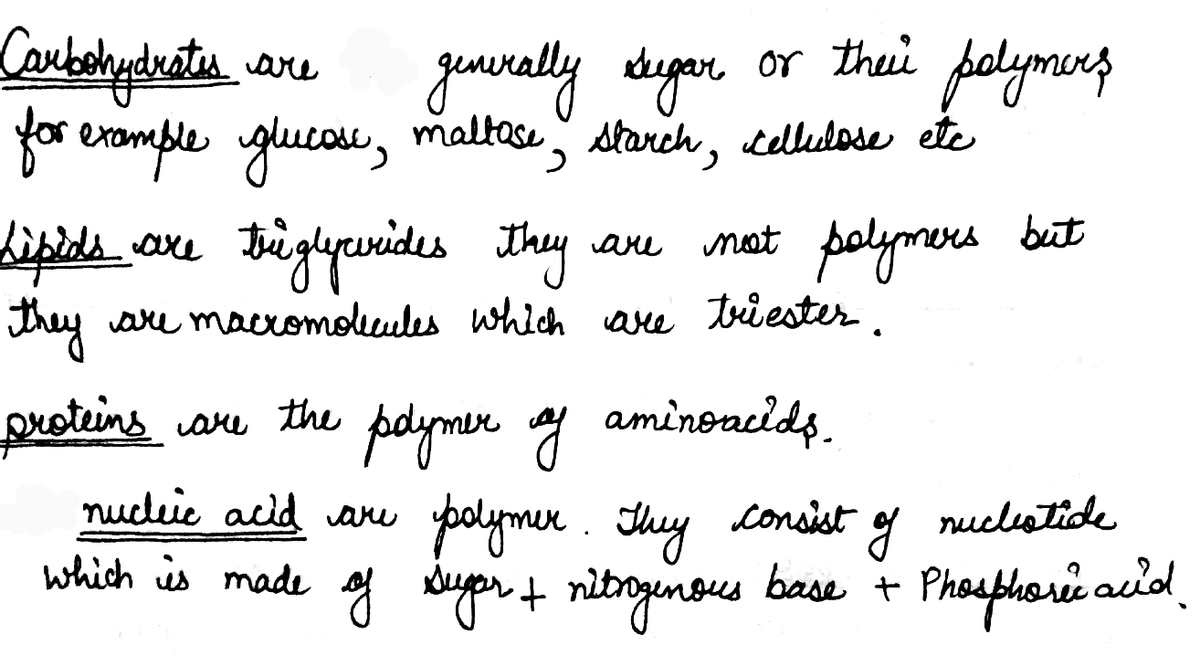 Carbohydrates are generally sugar or their polymers
for example glucose, maltose, starch, cellulose etc
Lipids are triglycerides they are not polymers but
they are macromolecules which are triester.
proteins are the polymer of aminoacids.
nucleic acid are polymer. They consist of nucleotide
which is made of sugar + nitrogenous base + Phosphoric acid.